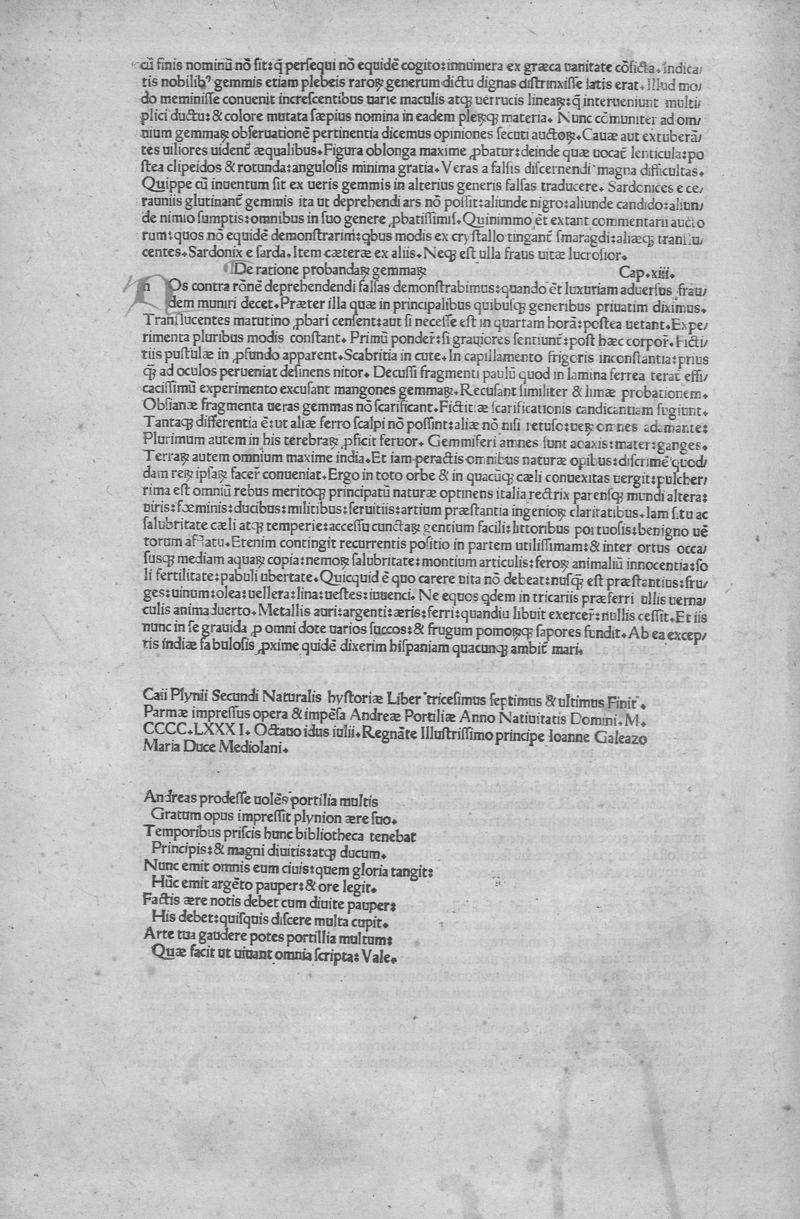 cū finis nominū nō sit: ꝙ persequi nō equidē cogito: innumera ex græca uanitate cōficta. indica/
tis nobilibꝰ gemmis etiam plebeis raroꝝ generum dictu dignas distrinxisse satis erat. Illud mo/
do meminisse conuenit increscentibus uarie maculis atqꝫ uerrucis lineaꝝ: ꝙ interueniunt multi/
plici ductu: & colore mutata sæpius nomina in eadem pleꝝqꝫ materia. Nunc cōmuniter ad om/
nium gemmaꝝ obseruationē pertinentia dicemus opiniones secuti auctoꝝ. Cauæ aut extuberā/
tes uiliores uident̄ æqualibus. Figura oblonga maxime ꝓbatur: deinde quæ uocat̄ lenticula: po
stea clipeidos & rotunda: angulosis minima gratia. Veras a falsis discernendi magna difficultas.
Quippe cū inuentum sit ex ueris gemmis in alterius generis falsas traducere. Sardonices e ce/
rauniis glutinant̄ gemmis ita ut deprehendi ars nō possit: aliunde nigro: aliunde candido: aliun/
de nimio sumptis: omnibus in suo genere ꝓbatissimis. Quinimmo ēt extant commentarii aucto
rum: quos nō equidē demonstrarim: qbus modis ex crystallo tingant̄ smaragdi: aliæqꝫ translu/
centes. Sardonix e sarda. Item cæteræ ex aliis. Neqꝫ est ulla fraus uitæ lucrosior.
De ratione probandaꝝ gemmaꝝ Cap. xiii.
n Os contra rōnē deprehendendi falsas demonstrabimus: quando ēt luxuriam aduersus frau/
dem muniri decet. Præter illa quæ in principalibus quibusqꝫ generibus priuatim diximus.
Translucentes matutino ꝓbari censent: aut si necesse est in quartam horā: postea uetant. Expe/
rimenta pluribus modis constant. Primū ponder̄: si grauiores sentiunt̄: post hæc corpor̄. Ficti/
tiis pustulæ in ꝓfundo apparent. Scabritia in cute. In capillamento frigoris inconstantia: prius
ꝙ ad oculos perueniat desinens nitor. Decussi fragmenti paulū quod in lamina ferrea terat̄ effi/
cacissimū experimento excusant mangones gemmaꝝ. Recusant similiter & limæ probationem.
Obsianæ fragmenta ueras gemmas nō scarificant. Fictitiæ scarificationis candicantiam fugiunt.
Tantaqꝫ differentia ē: ut aliæ ferro scalpi nō possint: aliæ nō nisi retuso: ueꝝ omnes adamante:
Plurimum autem in his terebraꝝ ꝓficit feruor. Gemmiferi amnes sunt acaxis: mater: ganges.
Terraꝝ autem omnium maxime india. Et iam peractis omnibus naturæ opibus: discrimē quod/
dam reꝝ ipsaꝝ facer̄ conueniat. Ergo in toto orbe & in quacūqꝫ cæli conuexitas uergit: pulcher/
rima est omniū rebus meritoqꝫ principatū naturæ optinens italia rectrix parensqꝫ mundi altera:
uiris: fœminis: ducibus: militibus: seruitiis: artium præstantia ingenioꝝ claritatibus. Iam situ ac
salubritate cæli atqꝫ temperie: accessu cunctaꝝ gentium facili: littoribus portuosis: benigno uē
torum afflatu. Etenim contingit recurrentis positio in partem utilissimam: & inter ortus occa/
susqꝫ mediam aquaꝝ copia: nemoꝝ salubritate: montium articulis: feroꝝ animaliū innocentia: so
li fertilitate: pabuli ubertate. Quicquid ē quo carere uita nō debeat: nusqꝫ est præstantius: fru/
ges: uinum: olea: uellera: lina: uestes: iuuenci. Ne equos qdem in tricariis præferri ullis uerna/
culis animaduerto. Metallis auri: argenti: æris: ferri: quandiu libuit exercer̄: nullis cessit. Et iis
nunc in se grauida ꝓ omni dote uarios succos: & frugum pomoꝝqꝫ sapores fundit. Ab ea excep/
tis indiæ fabulosis ꝓxime quidē dixerim hispaniam quacunqꝫ ambit̄ mari.
Caii Plynii Secundi Naturalis hystoriæ Liber tricesimus septimus & ultimus Finit̄.
Parmæ impressus opera & impēsa Andreæ Portiliæ Anno Natiuitatis Domini. M.
CCCC. LXXX I. Octauo idus iulii. Regnāte Illustrissimo principe Ioanne Galeazo
Maria Duce Mediolani.
Andreas prodesse uolēs portilia multis
Gratum opus impressit plynion ære suo.
Temporibus priscis hunc bibliotheca tenebat
Principis: & magni diuitis: atqꝫ ducum.
Nunc emit omnis eum ciuis: quem gloria tangit:
Hūc emit argēto pauper: & ore legit.
Factis ære notis debet cum diuite pauper:
His debet: quisquis discere multa cupit.
Arte tua gaudere potes portillia multum:
Quæ facit ut uiuant omnia scripta: Vale.